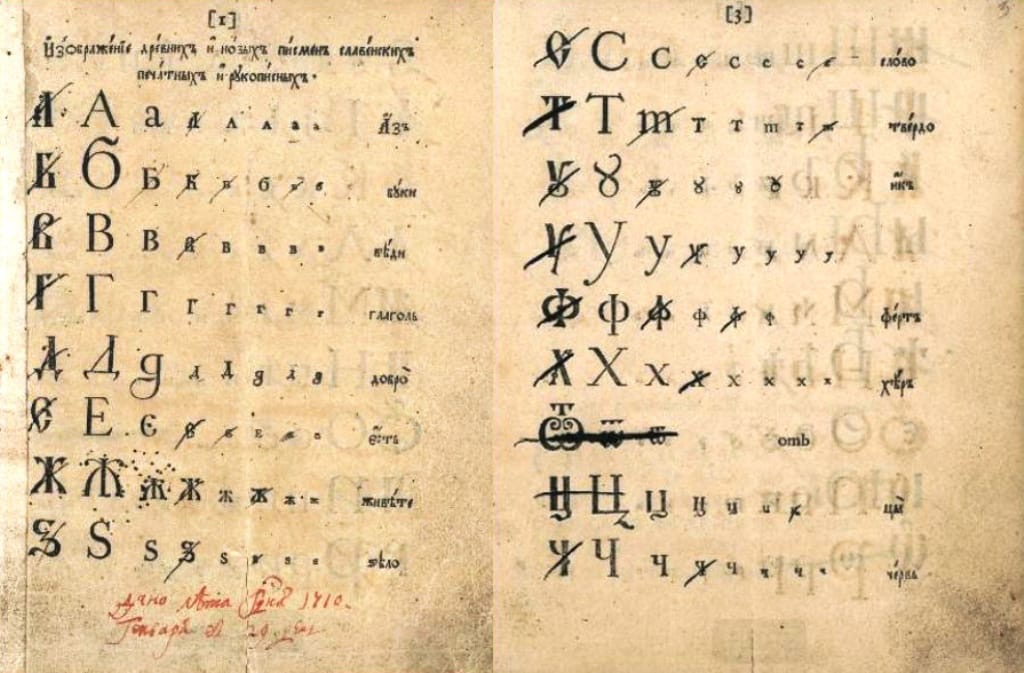 [1]
И҆зображе́нїе дре́внихъ и҆ но́выхъ пи́сменъ славе́нскихъ
печа́тныхъ и҆ рꙋкопи́сныхъ.
А А а А а а а а а҆́зъ
Б Б Б Б б б б б бꙋ́ки
В В В В в в в в вѣ́ди
Г Г Г г г г г г глаго́ль
Д Д д д Д д д д добро̀
Є Е є є є е є е є҆́сть
Ж Ж Ж Ж ж ж ж ж живѣ́те
Ѕ Ѕ ѕ ѕ ѕ ѕ ѕ ѕ ѕѣло̀
Дано лѣта Гдня 1710.
Генваря 29 дня
[3]
С С с с с с с с сло́во
Т Т т т т т т т тве́рдо
Ꙋ Ꙋ ꙋ ꙋ ꙋ ꙋ и҆́къ
У У у у у у у у
Ф ф ф ф ф ф фе́ртъ
Х Х х х х х х х хѣ́ръ
Ѿ ѿ ѿ отъ
Ц Ц ц ц ц ц ц цы̀
Ч Ч ч ч ч ч ч ч че́рвь